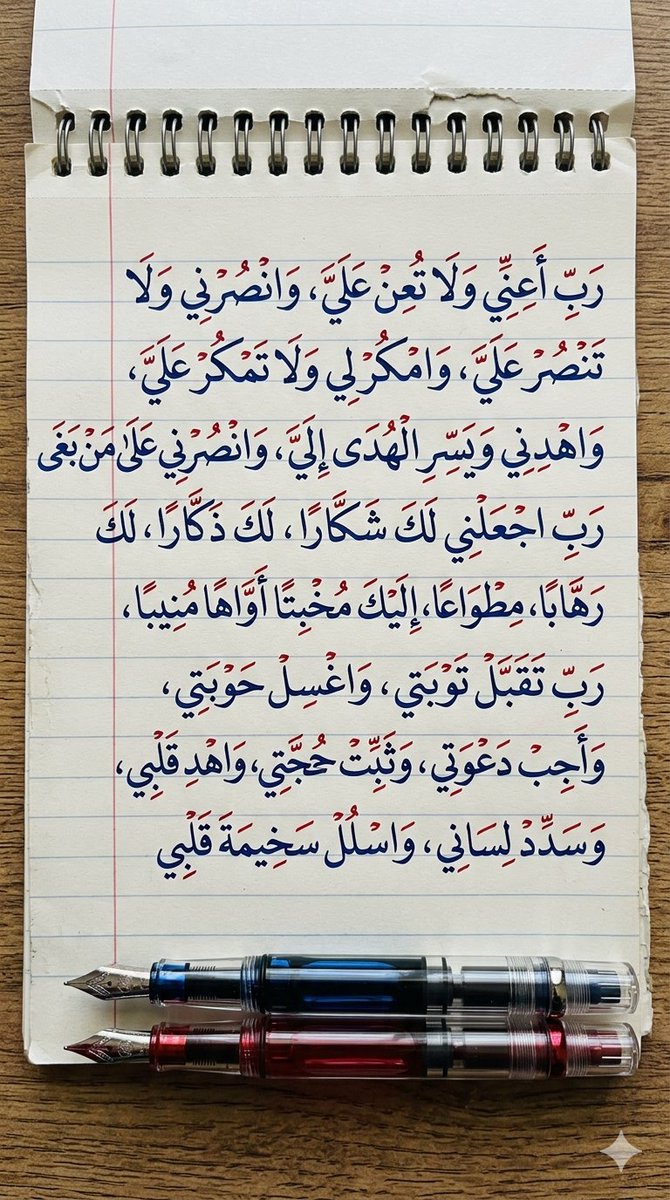 رَبِّ أَعِنِّي وَلَا تُعِنْ عَلَيَّ، وَانْصُرْنِي وَلَا
تَنْصُرْ عَلَيَّ، وَامْكُرْ لِي وَلَا تَمْكُرْ عَلَيَّ،
وَاهْدِنِي وَيَسِّرِ الْهُدَى إِلَيَّ، وَانْصُرْنِي عَلَى مَنْ بَغَى
رَبِّ اجْعَلْنِي لَكَ شَكَّارًا، لَكَ ذَكَّارًا، لَكَ
رَهَّابًا، مِطْوَاعًا، إِلَيْكَ مُخْبِتًا أَوَّاهًا مُنِيبًا،
رَبِّ تَقَبَّلْ تَوْبَتِي، وَاغْسِلْ حَوْبَتِي،
وَأَجِبْ دَعْوَتِي، وَثَبِّتْ حُجَّتِي، وَاهْدِ قَلْبِي،
وَسَدِّدْ لِسَانِي، وَاسْلُلْ سَخِيمَةَ قَلْبِي